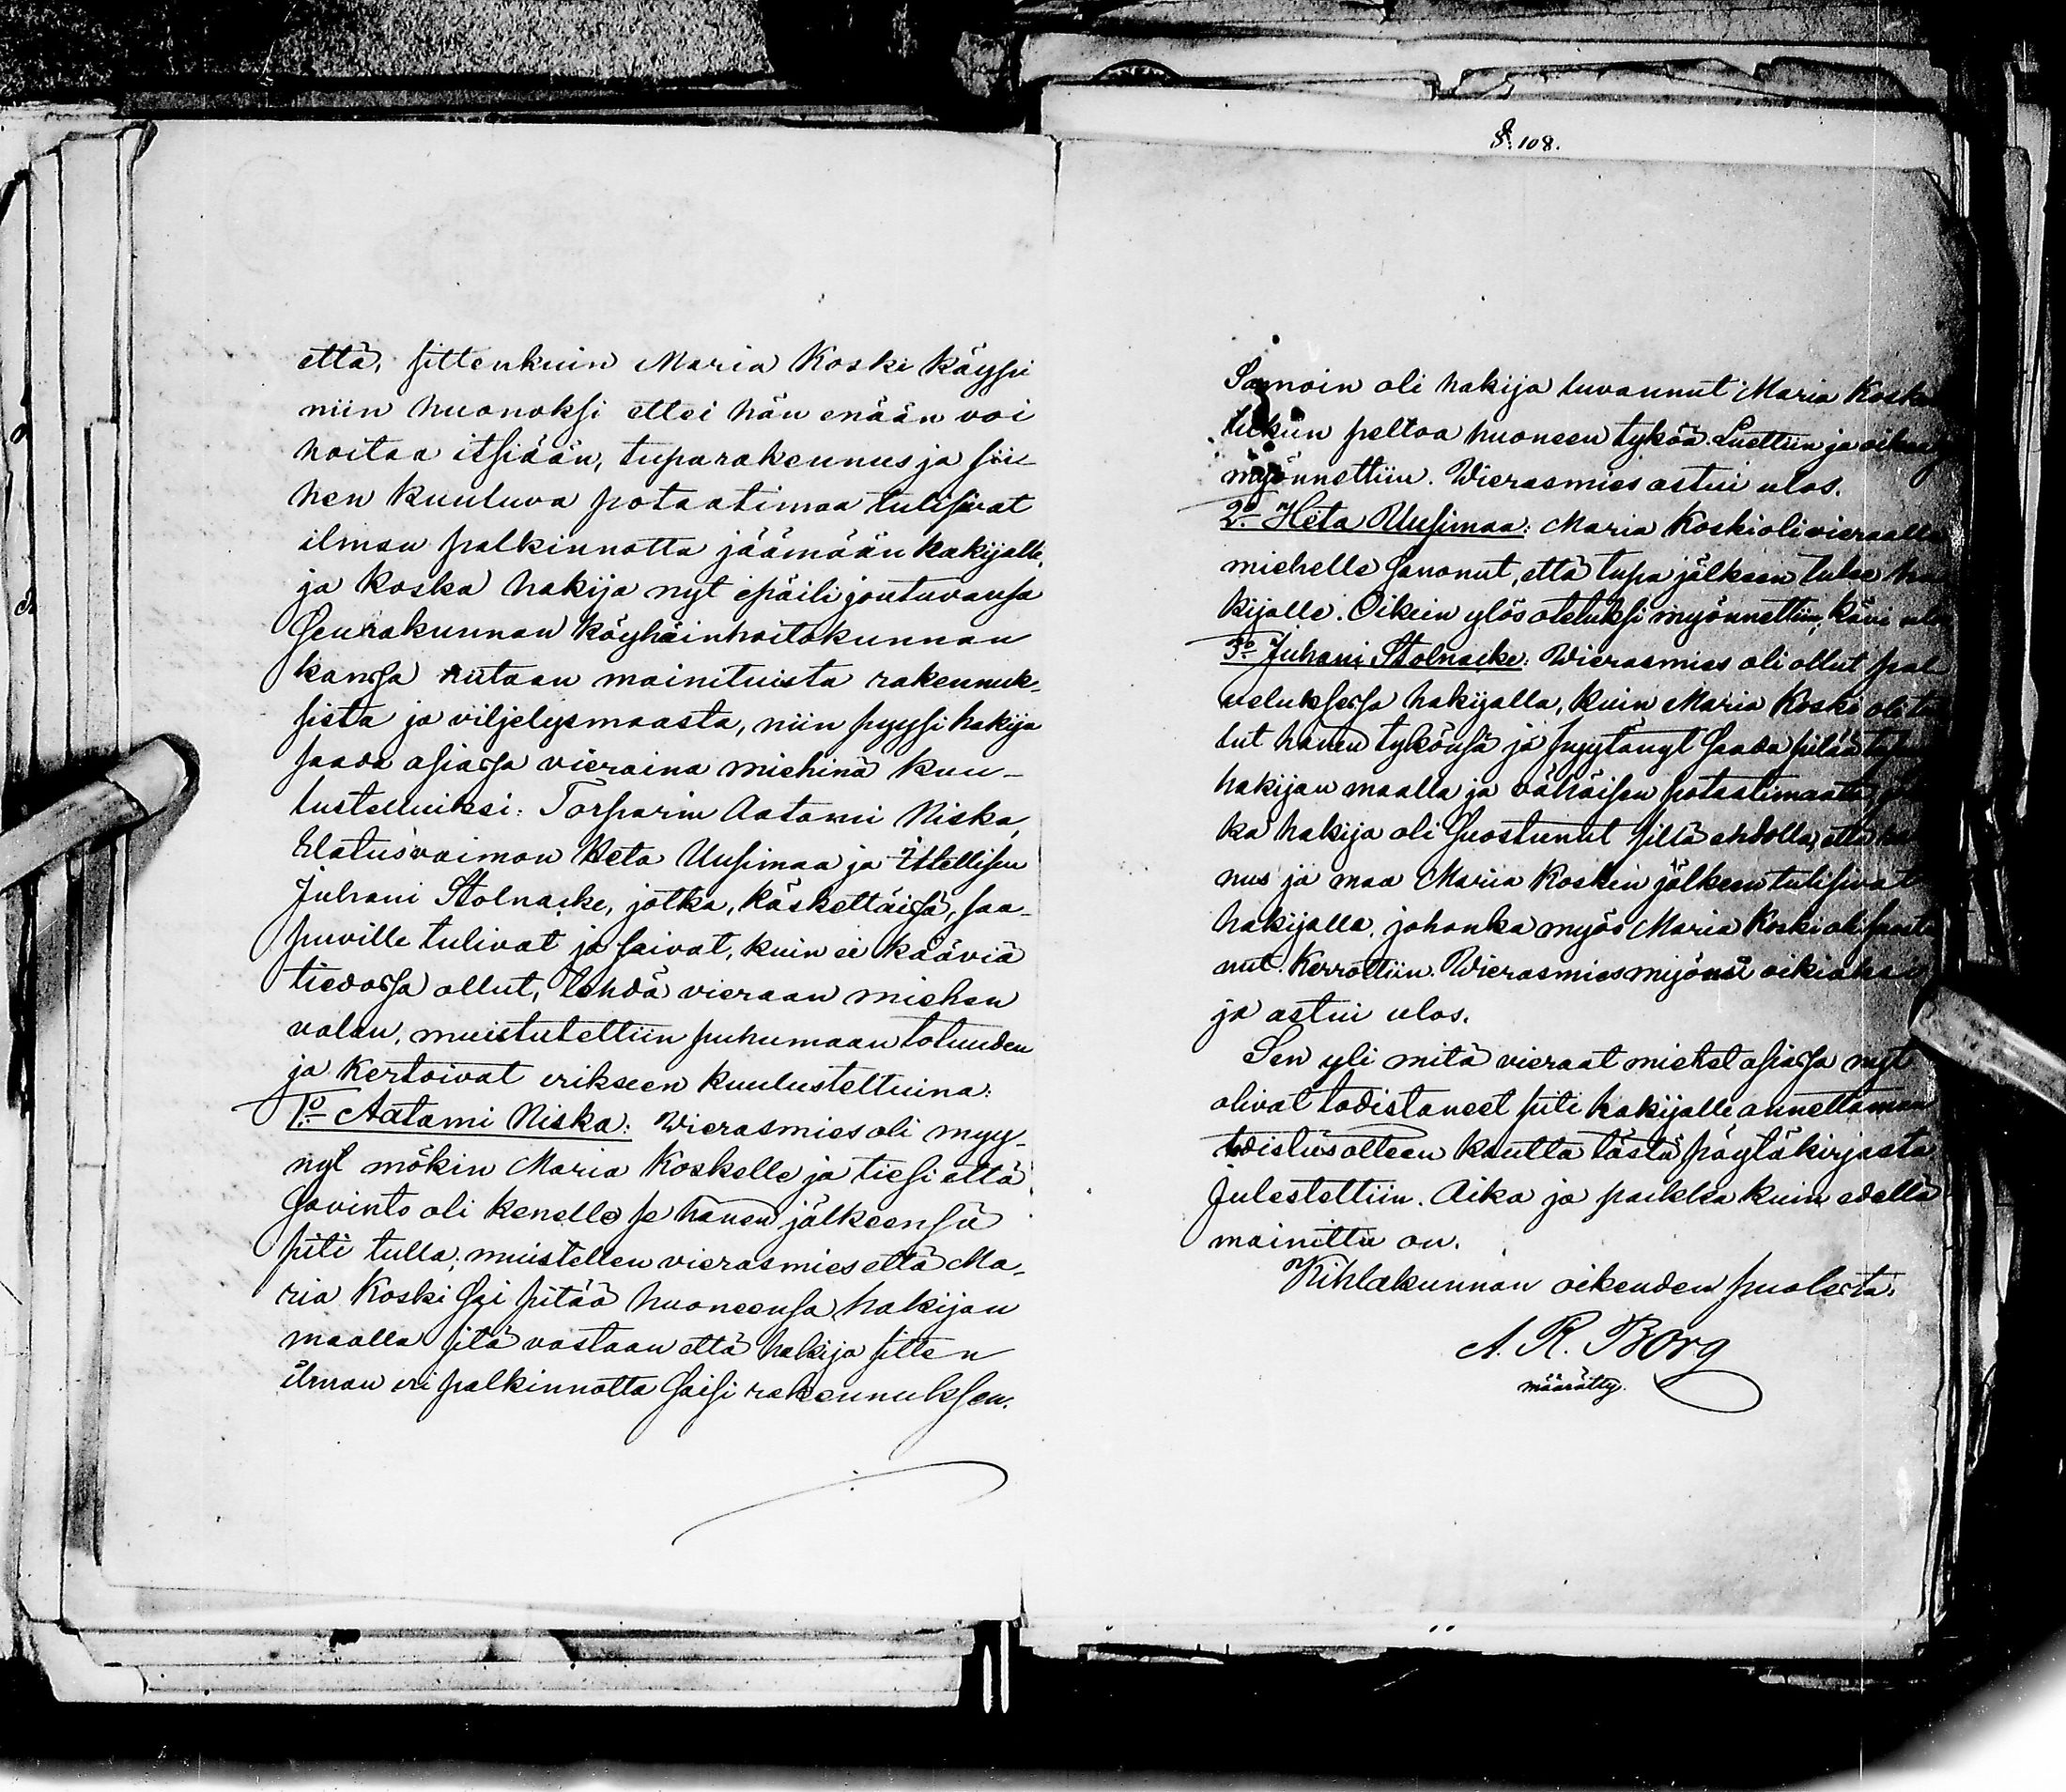 että, sittenkuin Maria Koski käypi
niin huonoksi ettei hän enään voi
hoitaa itsiään, tuparakennus ja sii-
hen kuuluva potaatimaa tulisivat
ilman palkinnotta jäämään hakijalle,
ja koska hakija nyt epäili joutuvansa
Seurakunnan köyhäinhoitokunnan
kanssa riitaan mainituista rakennuk-
sista ja viljelysmaasta, niin pyysi hakija
saada asiassa vieraina miehinä kuu-
lustelluiksi: Torparin Aatami Niska,
Elatusvaimon Heta Uusimaa ja Itsellisen
Juhani Stolnacke, jotka, käskettäissä, saa-
puville tulivat ja saivat, kuin ei jääviä
tiedossa ollut, tehdä vieraan miehen
valan, muistutettiin puhumaan totuuden
ja kertoivat erikseen kuulusteltuina:
1:o Aatami Niska: Wierasmies oli myy-
nyt mökin Maria Koskelle ja tiesi että
sovinto oli kenelle se hänen jälkeensä
piti tulla; muistellen vierasmies että Ma-
ria Koski sai pitää huoneensa hakijan
maalla sitä vastaan että hakija sitten
ilman eri palkinnotta saisi rakennuksen.
§. 108.
Samoin oli hakija luvannut Maria Koske
tilkun peltoa huoneen tyköä. Luettiin ja
myönnettiin. Wierasmies astui ulos.
2:o Heta Uusimaa: Maria Koski oli vieraalle
miehelle sanonut, että tupa jälkeen tulee ha
kijalle. Oikein ylösotetuksi myönnettiin; kävi ulos
3:o Juhani Stolnacke: Wierasmies oli ollut pal
veluksessa hakijalla, kuin Maria Koski oli tu
lut hänen tykönsä ja pyytänyt saada pitää
hakijan maalla ja vähäisen potaatimaata,
ka hakija oli suostunut sillä ehdolla, että
nus ja maa Maria Kosken jälkeen tulisivat
hakijalle, johonka myös Maria Koski oli suostu
nut. Kerrottiin. Wierasmies myönsi oikiaksi
ja astui ulos.
Sen yli mitä vieraat miehet asiassa nyt
olivat todistaneet piti hakijalle annettaman
todistusotteen kautta tästä pöytäkirjasta
Julestettiin. Aika ja paikka kuin edellä
mainittu on.
Kihlakunnan oikeuden puolesta:
A. R. Borg
määrätty.